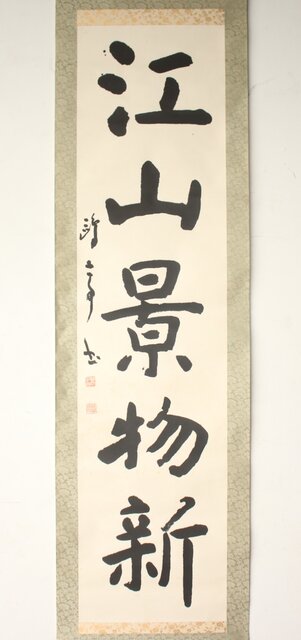 江山景物新